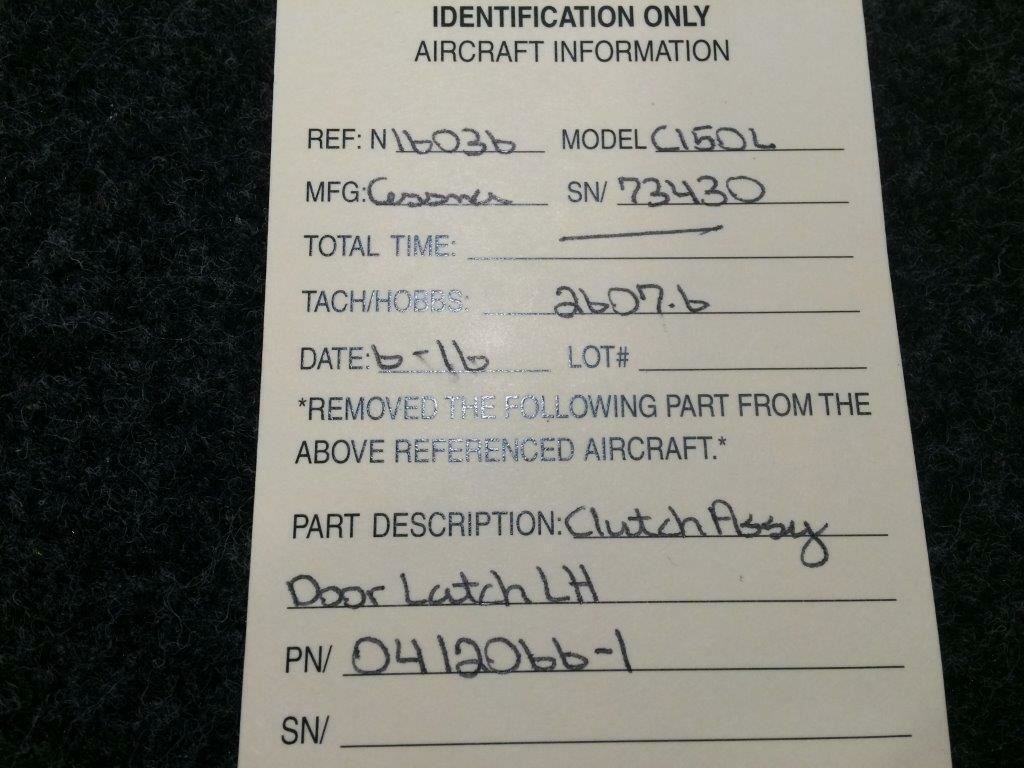 IDENTIFICATION ONLY
AIRCRAFT INFORMATION
REF: N 16036 MODEL C150L
MFG: Cessna SN/ 73430
TOTAL TIME: —
TACH/HOBBS: 2607.6
DATE: 6-16 LOT#
*REMOVED THE FOLLOWING PART FROM THE
ABOVE REFERENCED AIRCRAFT.*
PART DESCRIPTION: Clutch Assy
Door Latch LH
PN/ 0412066-1
SN/